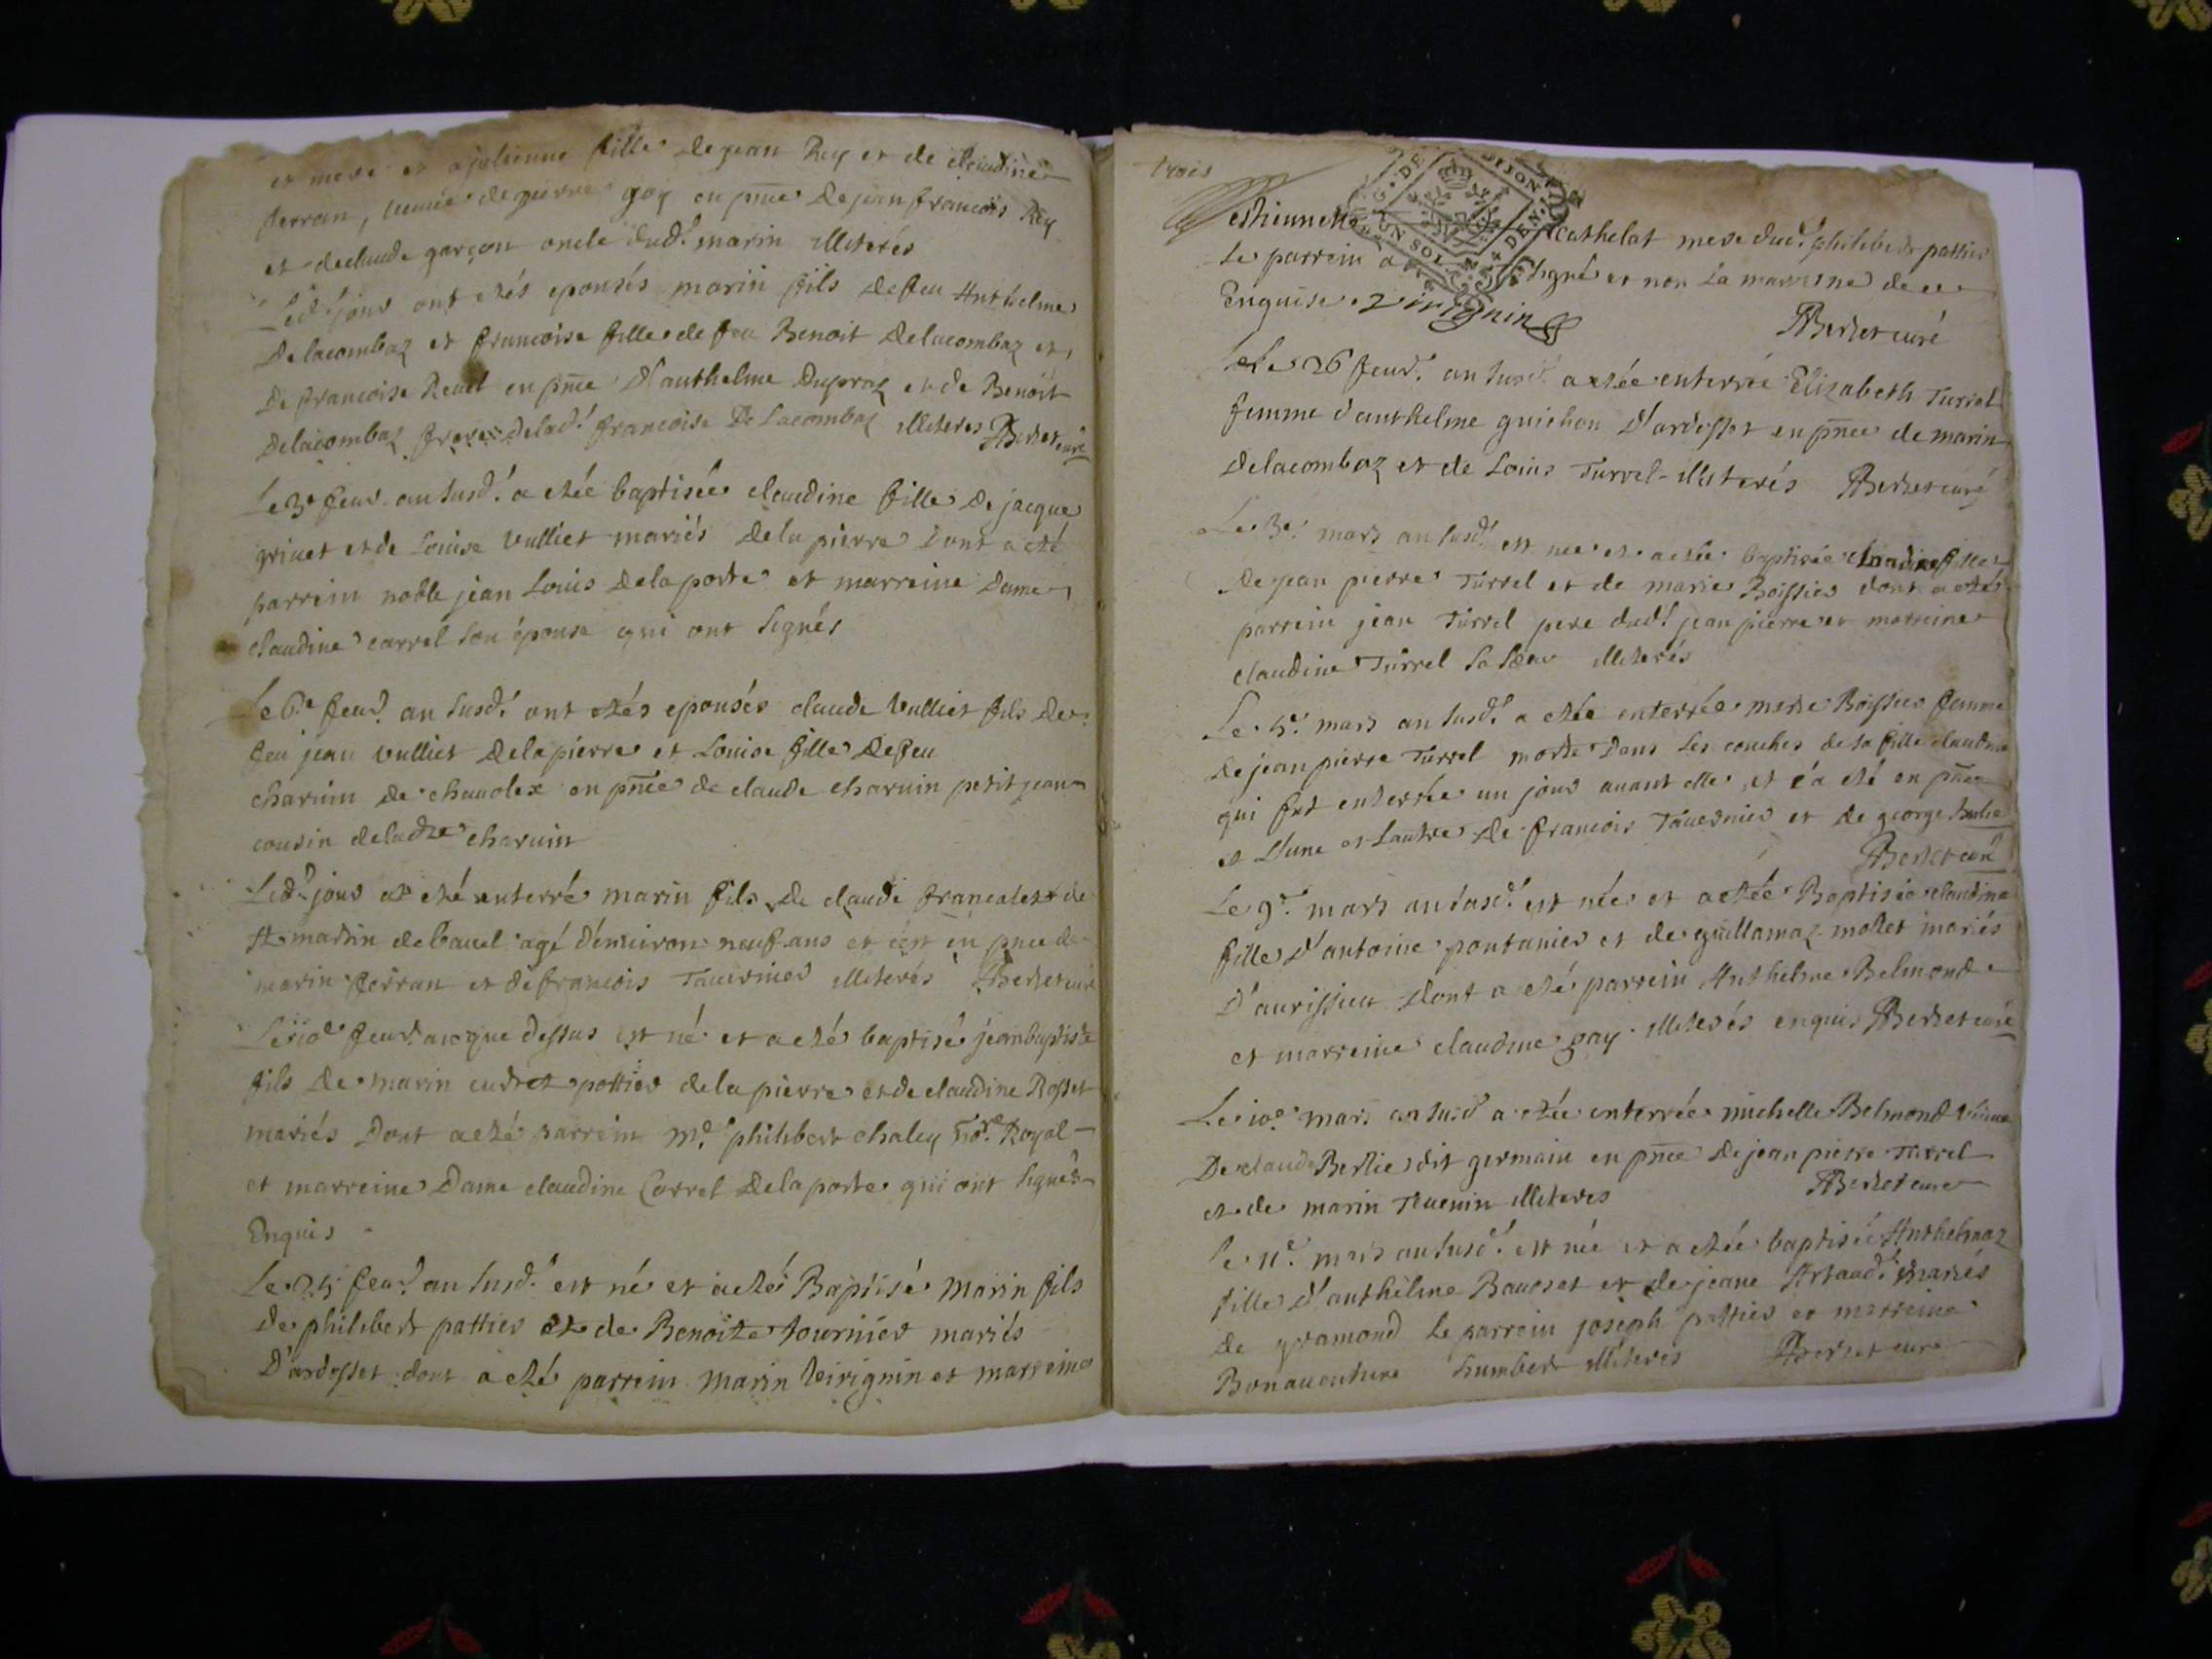 et mere et a julienne fille de jean Rey et de claudine
ferran, veuue de pierre goy en pnce de jean francois Rey
et de claude garçon oncle dud.t marin illiterés
Led.t jour ont etés epousés marin fils de feu Anthelme
Delacombaz et francoise fille de feu Benoit Delacombaz et
De francoise Reuel en pnce D'anthelme Dupraz et de Benoit
Delacombaz frere de lad.t francoise De Lacombaz illiteres Berlet curé
Le 3e feur. an susd.t a etée baptisée claudine fille De jacque
griuet et de Louise vulliet mariés De la pierre Dont a eté
parrein noble jean Louis Delaporte et marreine Dame
claudine carrel son épouse qui ont signés
Le 6.e feur. an susd.t ont etés epousés claude Vulliet fils De
feu jean vulliet De la pierre et Louise fille De feu
charuin de chanolex en pnce de claude charuin petit jean
cousin de ladte charuin
Led.t jour at eté enterré marin fils De claude francalet de
St martin de bauel agé d'enuiron neuf ans et c'est en pnce de
marin ferran et de francois Tauernier illiterés Berlet curé
Le 10e feur. ancque dessus est né et a eté baptisé jean baptiste
fils De marin cudret pottier de la pierre et de claudine Rosset
mariés Dont a eté parrein M.e philibert chaley no.re Royal
et marreine Dame claudine Carrel Delaporte qui ont signés
Enquis
Le 25 feur. an susd.t est né et a eté Baptisé Marin fils
De philibert pattier et de Benoite tournier mariés
D'ardosset dont a eté parrein Marin Virignin et marreine
trois
G. DE DIJON
UN SOL DEN.
estiennette cathelat mere dud.t philibert pattier
Le parrein a signé et non la marreine de ce
Enquise Virignin
Berlet curé
Le 26 feur. an susd.t a etée enterrée Elizabeth Turrel
femme d'anthelme guichon D'ardosset en pnce de marin
Delacombaz et de Louis Turrel illiterés Berlet curé
Le 3e. mars an susd.t est née et a etée baptisée claudine fille
De jean pierre Turrel et de marie Boissier dont a etés
parrein jean Turrel pere dud.t jean pierre et marreine
claudine Turrel sa sœur illiterés
Le 5.e mars an susd.t a etée enterrée marie Boissier femme
De jean pierre Turrel morte Dans Les couches de sa fille claudine
qui fut enterrée un jour auant elle, et c'a eté en pnce
et L'une et Lautre De francois Tauernier et de george
Berlet curé
Le 9.e mars an susd.t est née et a etée Baptisée claudine
fille D'antoine pontanier et de guillamaz mollet mariés
D'aurissieu Dont a eté parrein Anthelme Belmond
et marreine claudine gay illiterés enquis Berlet curé
Le 10.e mars an susd.t a etée enterrée michelle Belmond Veuue
De claude Berlie dit germain en pnce De jean pierre Turrel
et de marin Theuenin illiteres Berlet curé
Le 11.e mars an susd.t est née et a etée baptisée Anthelmaz
fille D'anthelme Bauoset et de jeane Artaud.t mariés
De gramond Le parrein joseph pattier et marreine
Bonauenture humbert illiterés Berlet curé